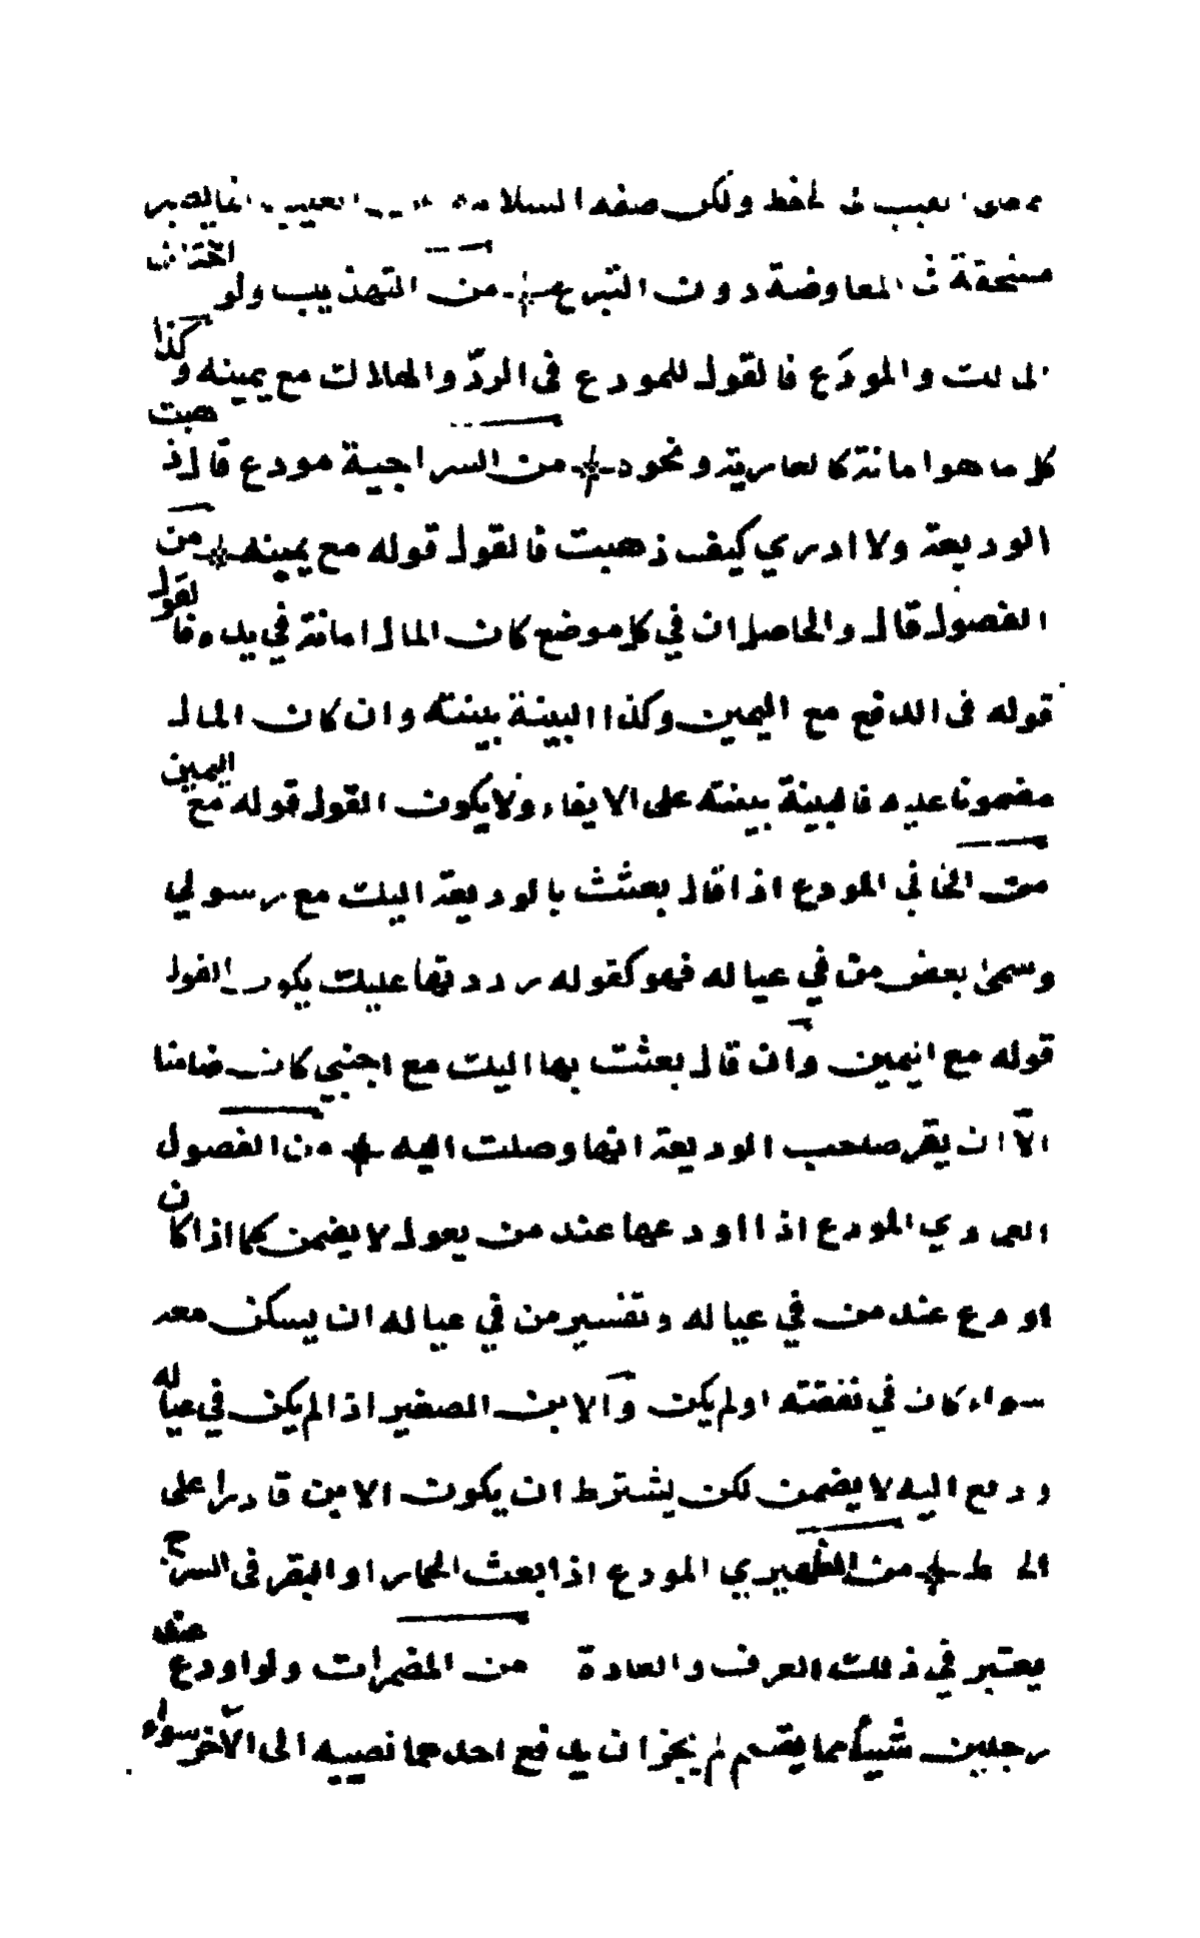 العيب في الحفظ ولكن صفه السلامة العيب انما يصير
مستحقة في المعاوضة دون التبرع من التهذيب ولو اختلف
المالك والمودَع فالقول للمودع في الردّ والهلاك مع يمينه وكذا
كل ما هو امانة كالعارية ونحوه من السراجية مودع قال ذهبت
الوديعة ولا ادري كيف ذهبت فالقول قوله مع يمينه من
الفصول قال والحاصل ان في كل موضع كان المال امانة في يده فالقول
قوله في الدفع مع اليمين وكذا البينة بينته وان كان المال
مضمونا عليه فالبينة بينته على الايفاء ولا يكون القول قوله مع اليمين
من الخاني المودع اذا قال بعثت بالوديعة اليك مع رسولي
وسمى بعض من في عياله فهو كقوله رددتها عليك يكون القول
قوله مع اليمين وان قال بعثت بها اليك مع اجنبي كان ضامنا
الا ان يقر صاحب الوديعة انها وصلت اليه من الفصول
العمادي المودع اذا اودعها عند من يعول لا يضمن كما اذا كان
اودع عند من في عياله وتفسير من في عياله ان يسكن معه
سواء كان في نفقته اولم يكن والابن الصغير اذا لم يكن في عياله
ودفع اليه لا يضمن لكن يشترط ان يكون الابن قادرا على
الحفظ من الظهيري المودع اذا بعث الحمار او البقر في السرح
يعتبر في ذلك العرف والعادة من المضمرات ولو اودع عند
رجلين شيئا مما يقسم لم يجز ان يدفع احدهما نصيبه الى الآخر سواء